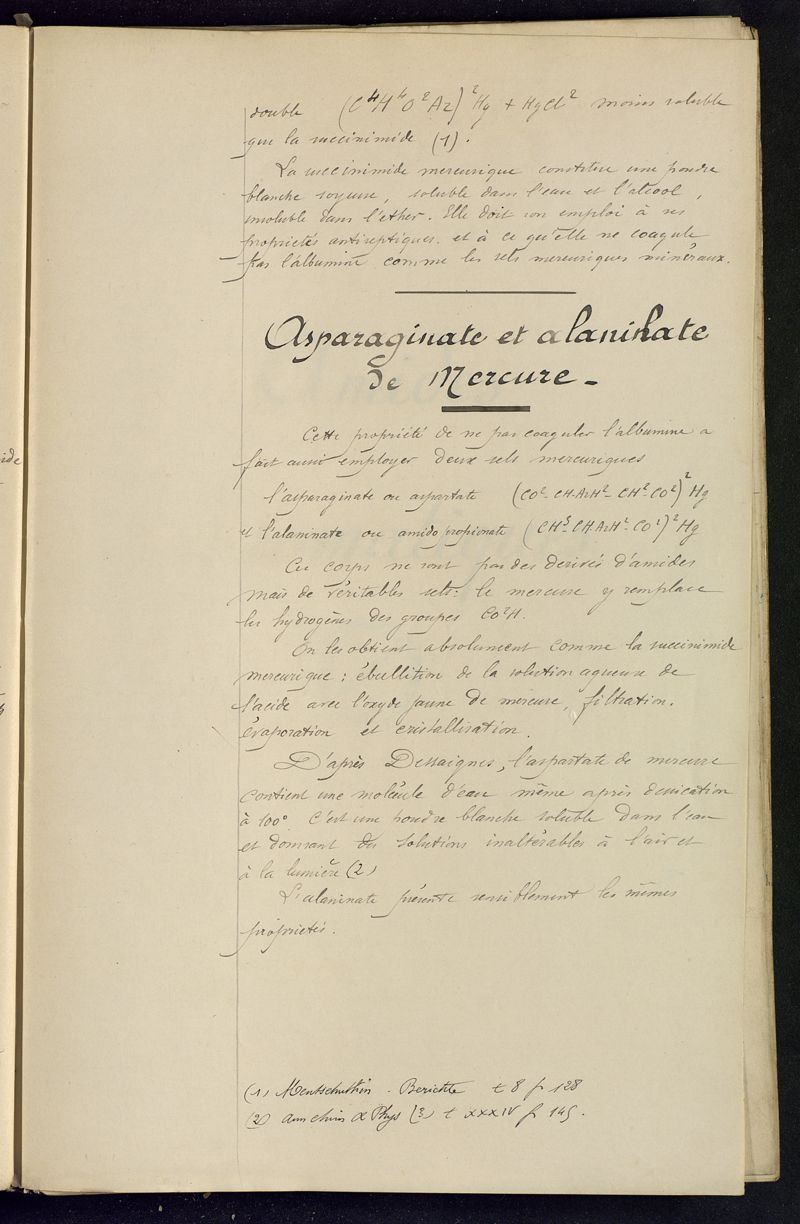 double (C⁴H⁴O²Az)²Hg + HgCl² moins soluble
que la succinimide (1).
La succinimide mercurique constitue une poudre
blanche soyeuse, soluble dans l'eau et l'alcool,
insoluble dans l'ether. Elle doit son emploi à ses
propriétés antiseptiques. et à ce qu'elle ne coagule
pas l'albumine comme les sels mercuriques minéraux.
Asparaginate et alaninate
de Mercure -
Cette propriété de ne pas coaguler l'albumine a
fait aussi employer deux sels mercuriques
l'asparaginate ou aspartate (CO²-CH.AzH²-CH²-CO²)²Hg
et l'alaninate ou amido propionate (CH³-CH.AzH²-CO²)²Hg
Ces corps ne sont pas des dérivés d'amides
mais de véritables sels: le mercure y remplace
les hydrogènes des groupes CO²H.
On les obtient absolument comme la succinimide
mercurique : ébullition de la solution aqueuse de
l'acide avec l'oxyde jaune de mercure, filtration.
évaporation et cristallisation.
D'après Dessaignes, l'aspartate de mercure
contient une molécule d'eau même après dessication
à 100° C'est une poudre blanche soluble dans l'eau
et donnant des solutions inaltérables à l'air et
à la lumière (2)
L'alaninate présente sensiblement les mêmes
propriétés.
(1) Mentschutkin - Berichte t 8 p 128
(2) ann chim & Phys (3) t XXXIV p 145.